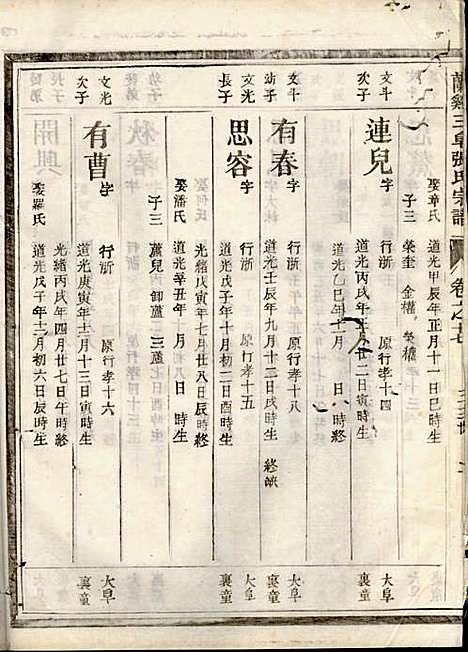 蘭谿三阜張氏宗譜 卷之七
娶章氏 道光甲辰年正月十一日巳時生
子三 榮奎 金權 榮權
文斗
次子
連兒 字 行浙 原行孝十四
道光丙戌年 月廿二日寅時生
大阜
裏童
道光乙巳年十一月 日 時終
文斗
幼子
有春 字 行浙 原行孝十八
道光壬辰年九月十三日戌時生 終缺
大阜
裏童
文光
長子
思容 字 行浙 原行孝十五
道光戊子年十月初二日酉時生
大阜
裏童
光緒戊寅年七月廿八日辰時終
娶潘氏 道光辛丑年 月 日 時生
子三 蘆兒 御蘆 三蘆
文光
次子
有曹 字 行浙 原行孝十六
道光庚寅年十二月十三日寅時生
大阜
裏童
光緒丙戌年四月廿七日午時終
娶羅氏 道光戊子年十二月初六日辰時生